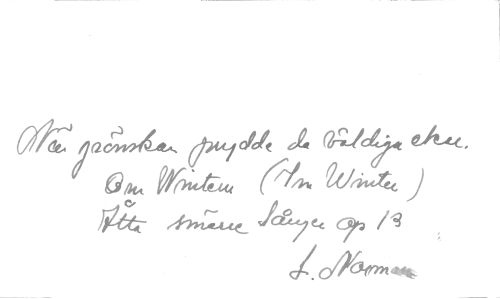 När grönskan prydde de väldiga ekar.
Om Wintern (Im Winter)
Åtta smärre Sånger op 13
L. Norman